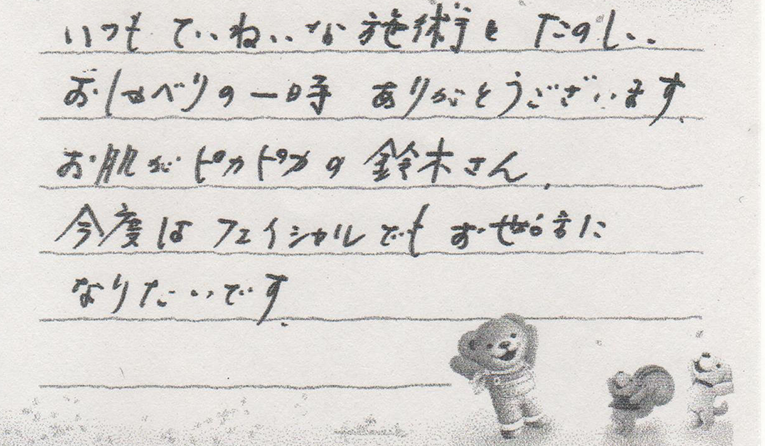 いつも ていねいな 施術と たのしい
おしゃべりの一時 ありがとうございます。
お肌が ピカピカの 鈴木さん。
今度は フェイシャルでも お世話に
なりたいです。